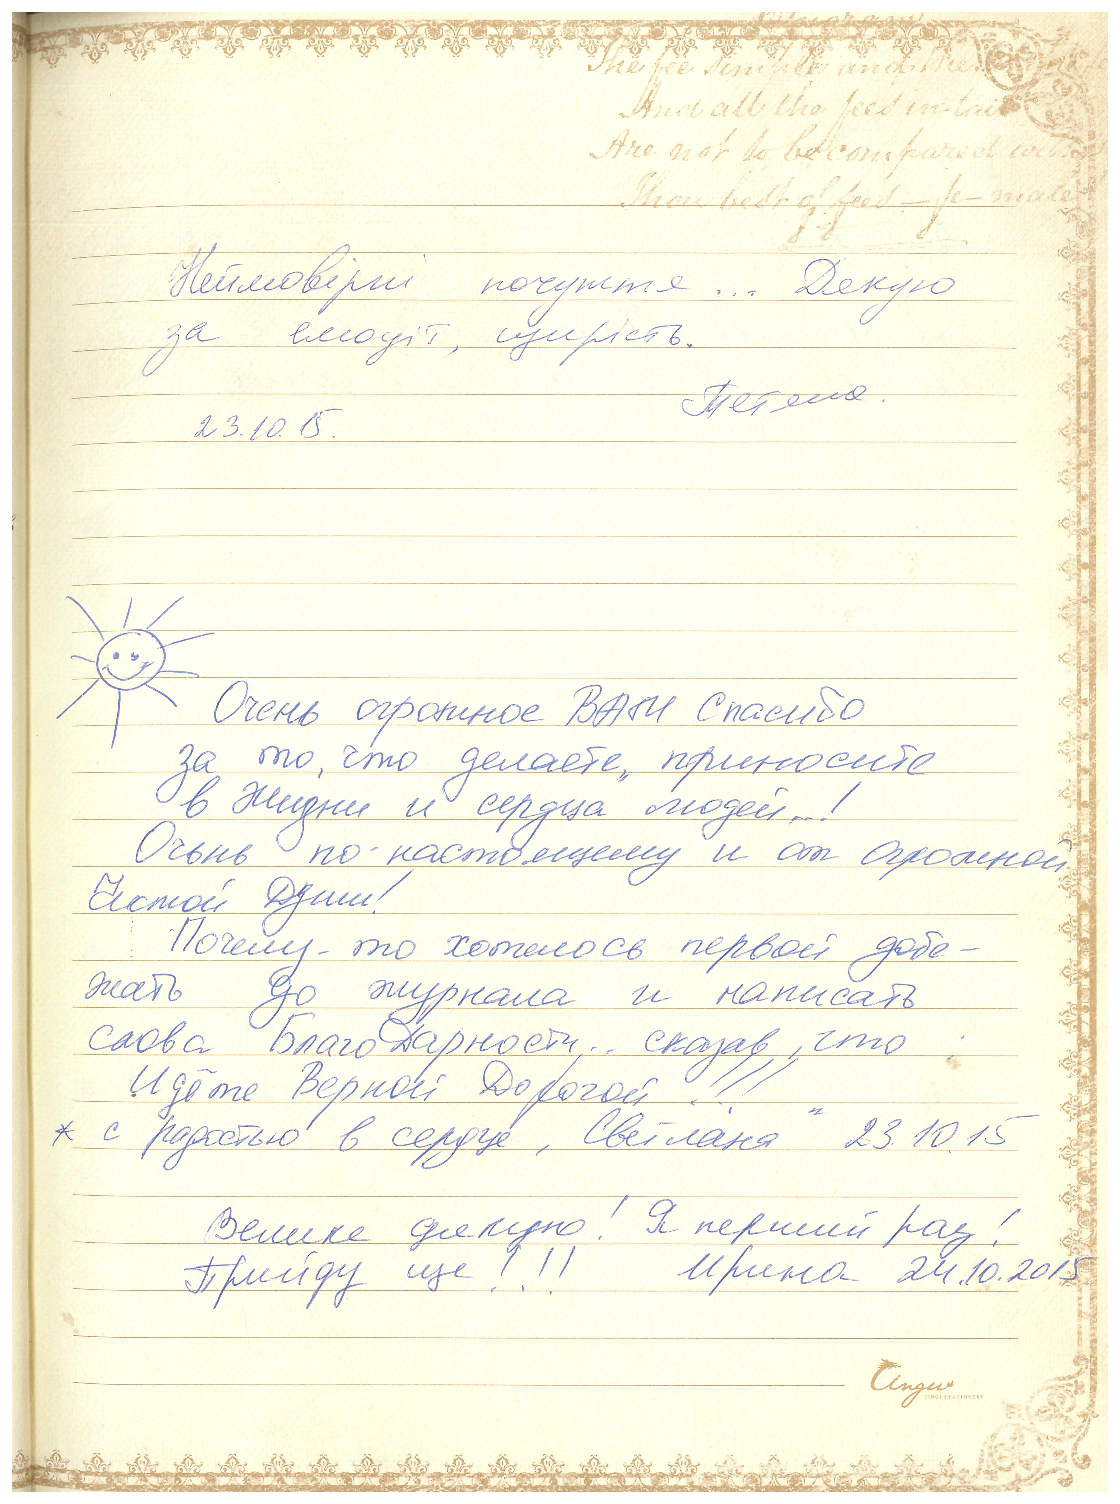 The fee simple and the
And all the fees in tail
Are not to be compared with
Thou best of fees — fe-male
Неймовірні почуття ... Дякую
за емоції, щирість.
Тетяна.
23.10.15.
Очень огромное ВАМ Спасибо
за то, что делаете,, приносите
в Жизни и сердца людей...!
Очьнь по настоящему и от огромной
Чистой Души!
Почему-то хотелось первой добе-
жать до журнала и написать
слова БлагоДарности... сказав, что
Идёте Верной Дорогой ..!!!
* с радостью в сердце, Светлана " 23.10.15
Велике дякую! Я перший раз!
Прийду ще!!! Ирина 24.10.2015